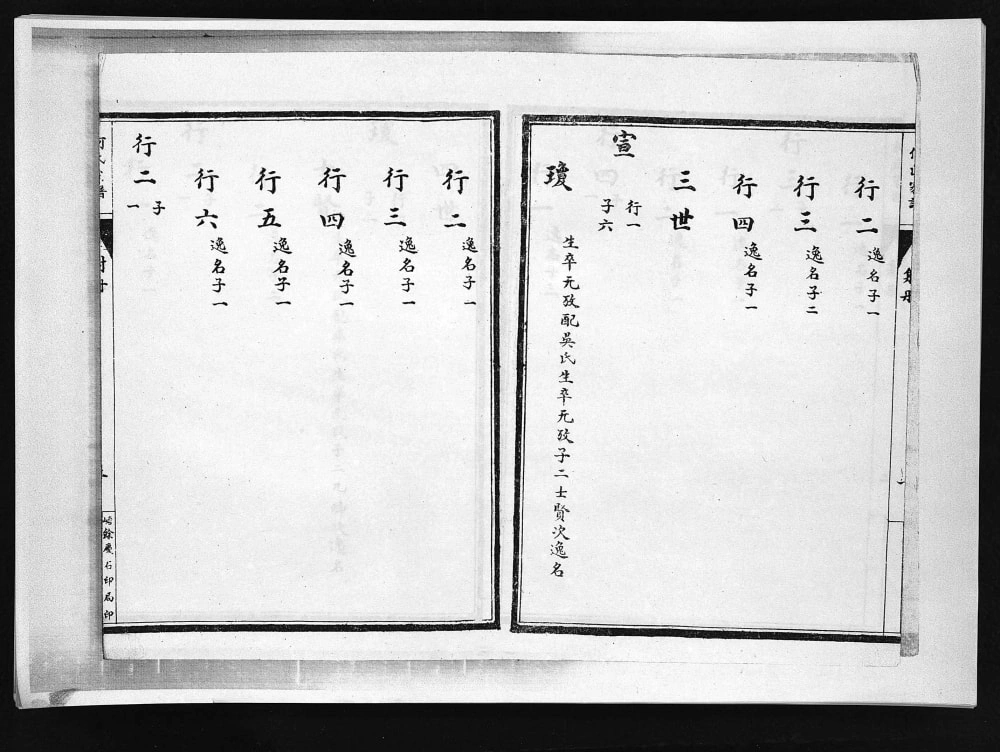 行二 逸名子一
行三 逸名子二
行四 逸名子一
三世
宣 行一 子六
瓊 生卒无攷配吳氏生卒无攷子二士賢次逸名
行二 逸名子一
行三 逸名子一
行四 逸名子一
行五 逸名子一
行六 逸名子一
行二 子一
餘慶石印局印